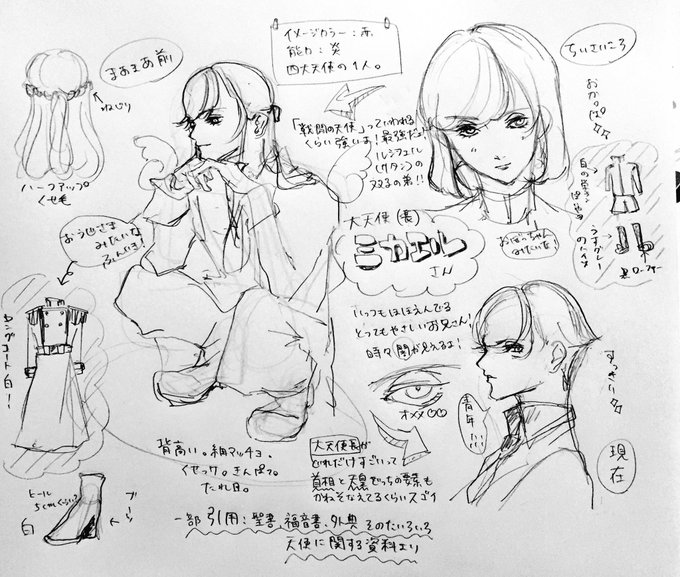 イメージカラー：赤
能力：炎
四大天使の1人。
まあまあ前
ねじり
ハーフアップ
くせ毛
おうじさま
みたいな
ふんいき！
ロングコート白！！
ヒール
白
ブーツ
「戦闘の天使」っていわれる
くらい強いよ！最強だよ！
ルシフェル
(サタン)の
双子の弟!!
大天使(長)
ミカエル
さん
ちいさいころ
おかっぱ
おぼっちゃん
みたいな！
うすグレー
のハイソ
ローファー
いつもほほえんでる
とってもやさしいお兄さん！
時々闇が見えるよ！
オメメ♡♡
すっきり
青年
現在
背高い。細マッチョ。
くせっケ。きんぱつ。
たれ目。
大天使長が
どれだけすごいって
首相と天皇どっちの要素も
かねそなえてるくらいスゴイ
一部引用：聖書、福音書、外典 そのたいろいろ
天使に関する資料より